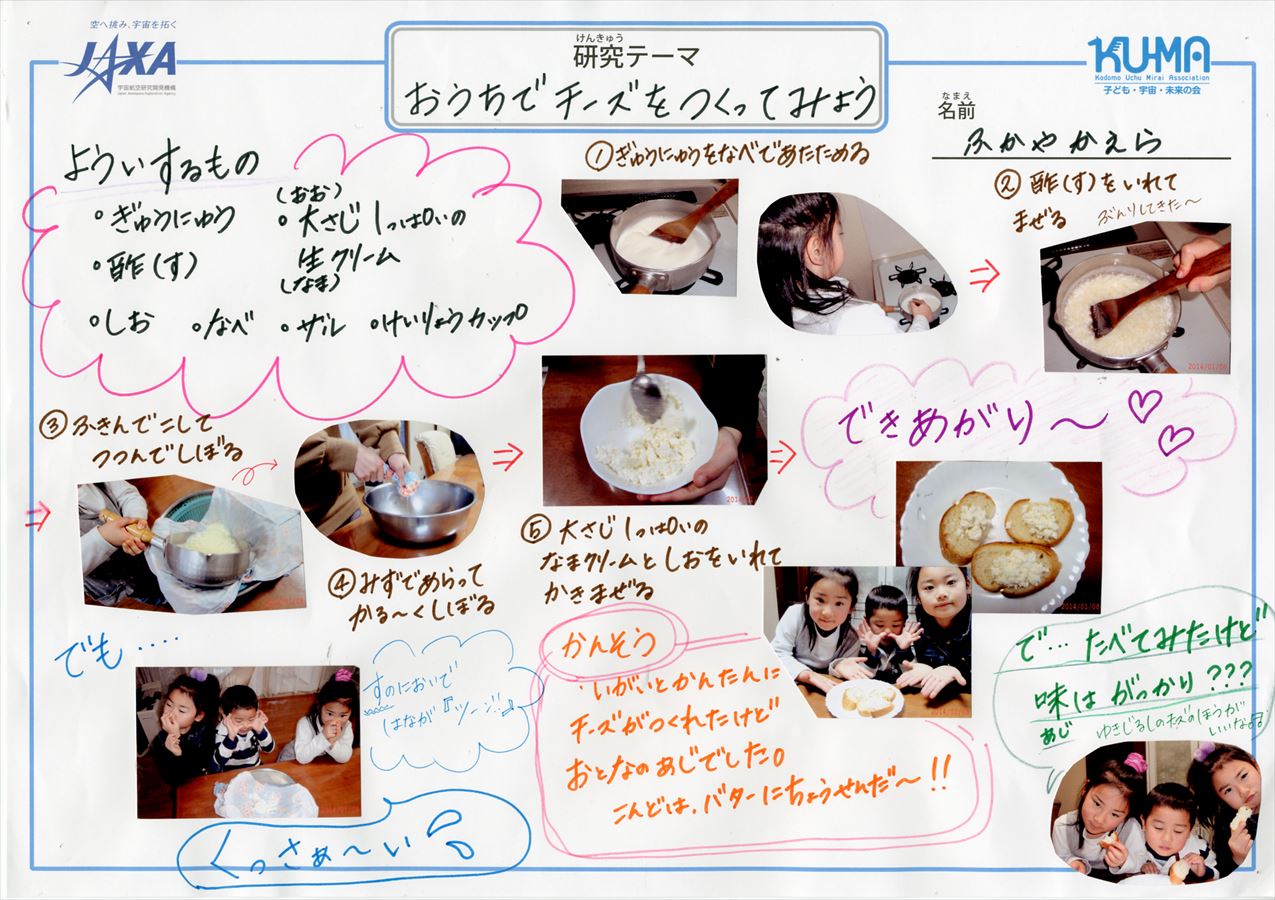 空へ挑み、宇宙を拓く
JAXA
宇宙航空研究開発機構
Japan Aerospace Exploration Agency
けんきゅう
研究テーマ
おうちでチーズをつくってみよう
KU-MA
Kodomo Uchu Mirai Association
子ども・宇宙・未来の会
なまえ
名前
ふかやかえら
よういするもの
・ぎゅうにゅう
・酢(す)
(おお)
・大さじ1っぱいの
生クリーム
(なま)
・しお ・なべ ・ザル ・けいりょうカップ
①ぎゅうにゅうをなべであたためる
②酢(す)をいれて
まぜる
ぶんりしてきた〜
2014/01/08
③ふきんでこして
つつんでしぼる
④みずであらって
かる〜くしぼる
⑤大さじ1っぱいの
なまクリームとしおをいれて
かきまぜる
できあがり〜♡♡
2014/01/08
でも・・・・
すのにおいで
はなが『ツーン』!!
くっさぁ〜い
かんそう
・いがいとかんたんに
チーズがつくれたけど
おとなのあじでした。
こんどは、バターにちょうせんだ〜!!
で…たべてみたけど
味はがっかり???
あじ
ゆきじるしのチーズのほうが
いいな